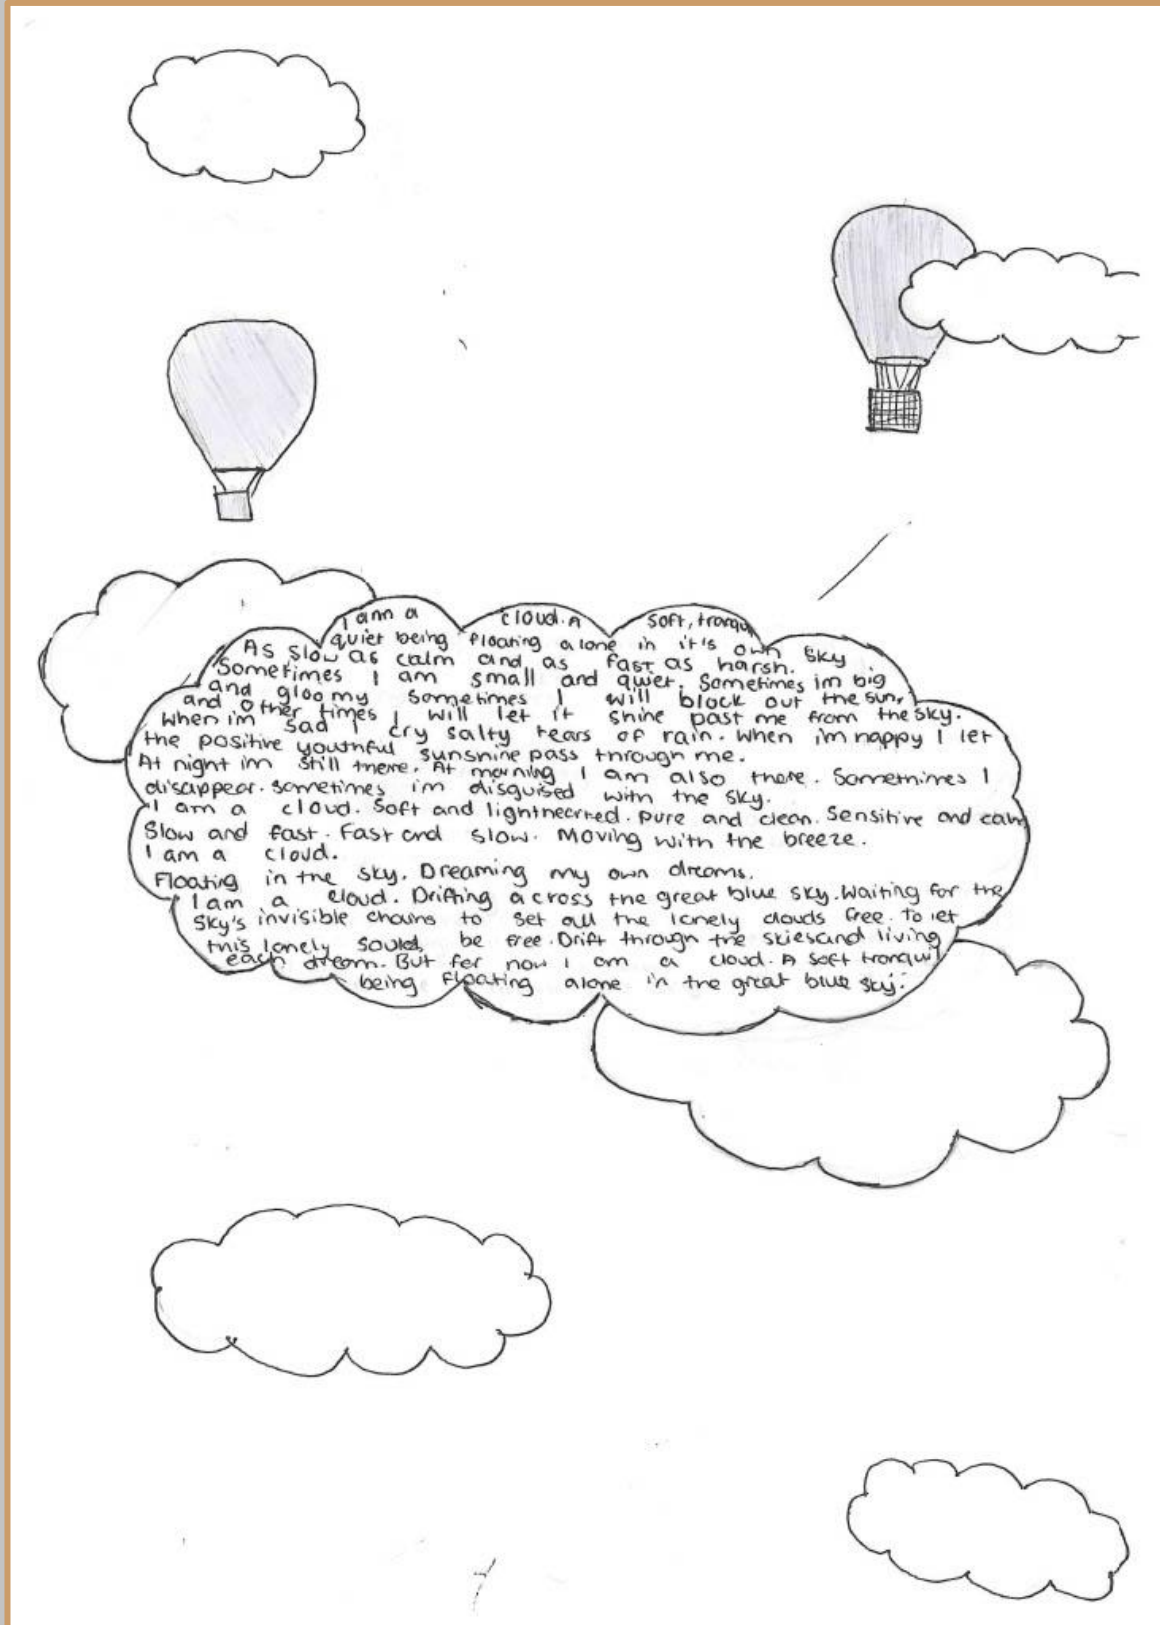 I am a cloud. A soft, tranquil
quiet being floating alone in it's own sky
As slow as calm and as fast as harsh.
Sometimes I am small and quiet. Sometimes im big
and gloomy sometimes I will block out the sun,
and other times I will let it shine past me from the sky.
When im sad I cry salty tears of rain. When im happy I let
the positive youthful sunshine pass through me.
At night im still there. At morning I am also there. Somethimes I
disappear. Sometimes im disguised with the sky.
I am a cloud. Soft and lighthearted. Pure and clean. Sensitive and calm
Slow and fast. Fast and slow. Moving with the breeze.
I am a cloud.
Floating in the sky. Dreaming my own dreams.
I am a cloud. Drifting across the great blue sky. Waiting for the
sky's invisible chains to set all the lonely clouds free. To let
this lonely be free. Drift through the skies and living
each dream. But for now I am a cloud. A soft tranquil
being floating alone in the great blue sky.